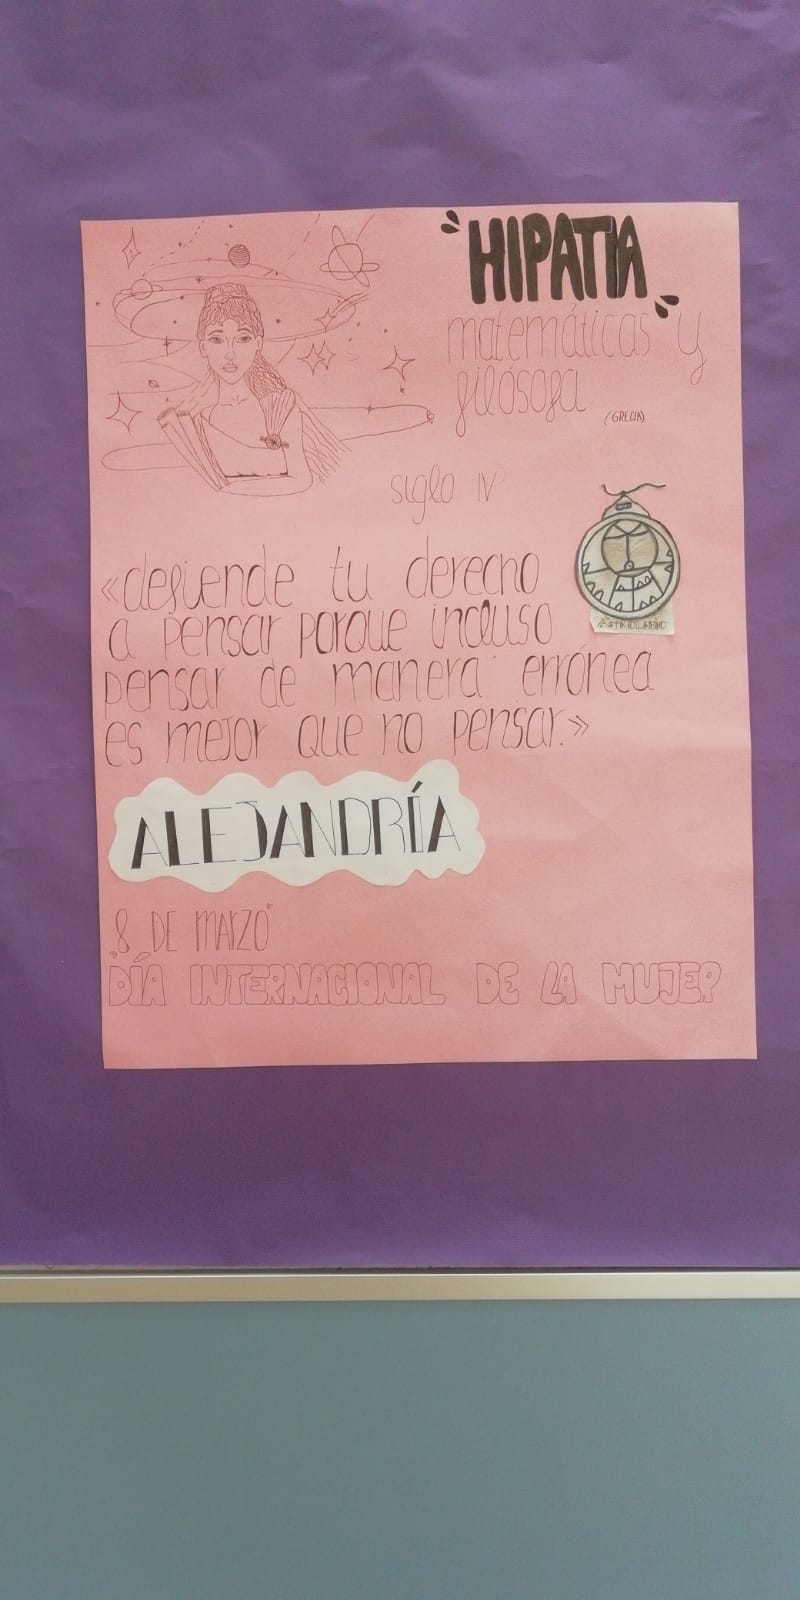 "HIPATIA"
matemáticas y
filósofa
(GRECIA)
siglo IV
«defiende tu derecho
a pensar porque incluso
pensar de manera errónea
es mejor que no pensar.»
ASTROLABIO
ALEJANDRÍA
8 DE MARZO
"DÍA INTERNACIONAL DE LA MUJER"